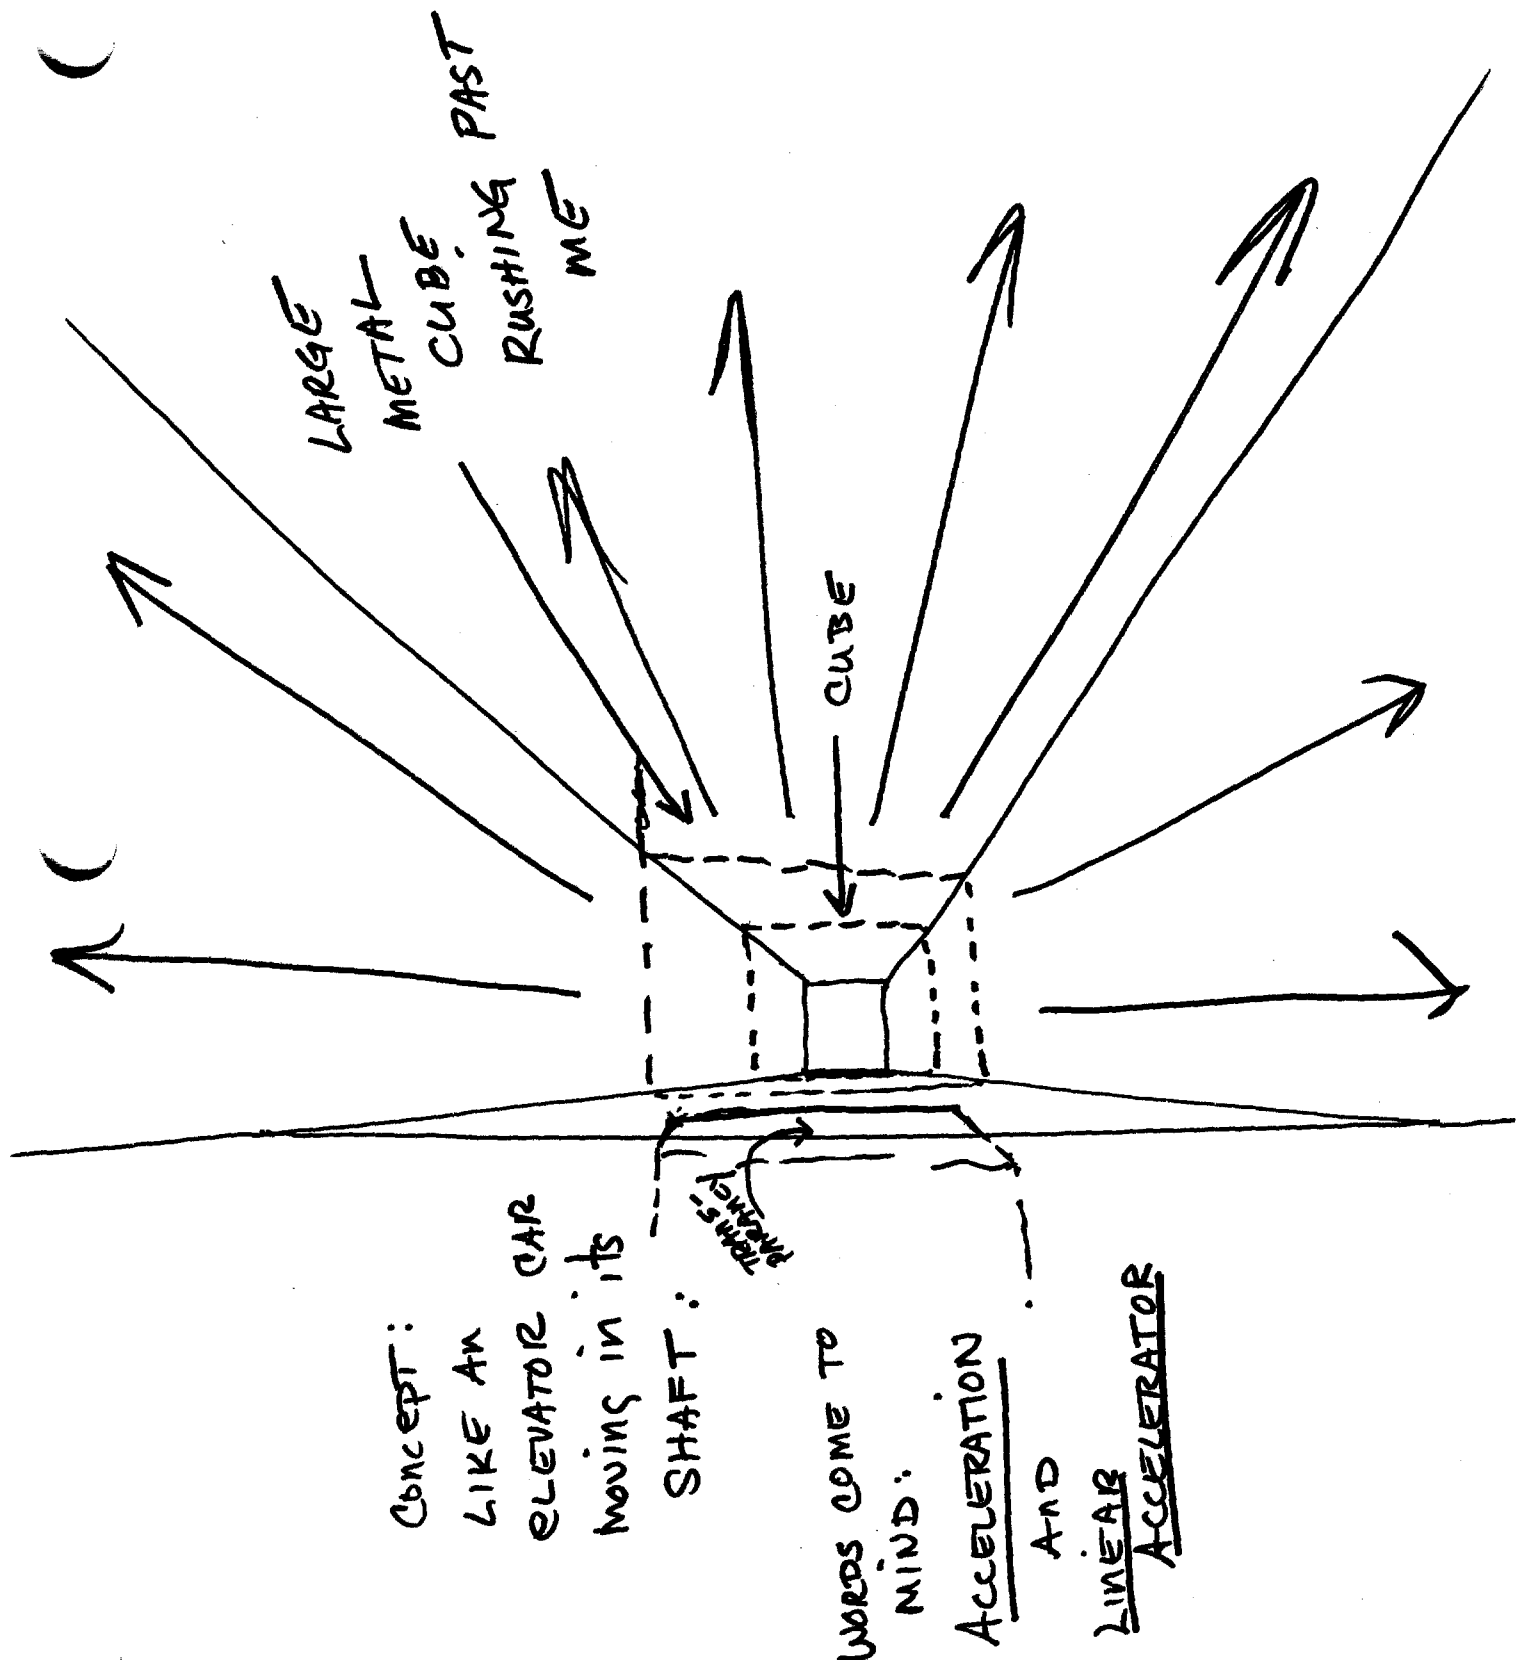 LARGE
METAL
CUBE
RUSHING PAST
ME
CUBE
TRANS-
PARANCY
CONCEPT:
LIKE AN
ELEVATOR CAR
MOVING in its
SHAFT:
WORDS COME TO
MIND:
ACCELERATION
AND
LINEAR
ACCELERATOR